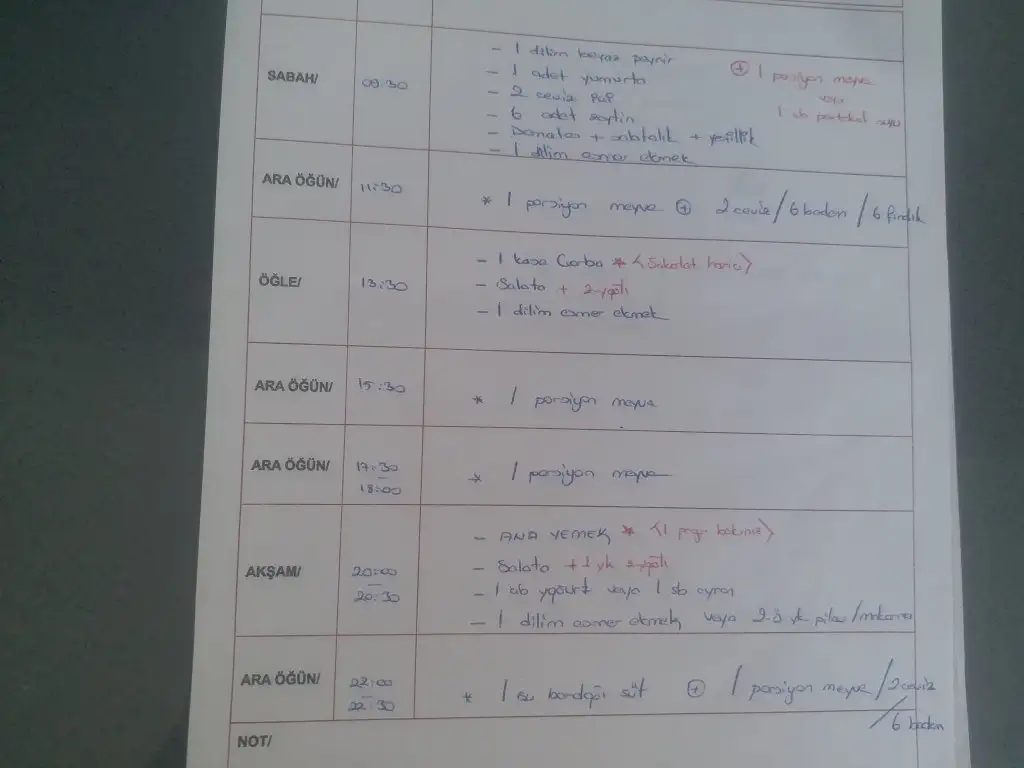 SABAH/
09:30
- 1 dilim beyaz peynir
- 1 adet yumurta
- 2 ceviz
- 6 adet zeytin
- Domates + salatalık + yeşillik
- 1 dilim esmer ekmek
⊕ 1 porsiyon meyve
veya
1 sb portakal suyu
ARA ÖĞÜN/
11:30
* 1 porsiyon meyve ⊕ 2 ceviz / 6 badem / 6 fındık
ÖĞLE/
13:30
- 1 kase Çorba * <Sakatat hariç>
- Salata + z.yağlı
- 1 dilim esmer ekmek
ARA ÖĞÜN/
15:30
* 1 porsiyon meyve
ARA ÖĞÜN/
17:30
18:00
* 1 porsiyon meyve
AKŞAM/
20:00
20:30
- ANA YEMEK *
- Salata + 1 yk z.yağlı
- 1 sb yoğurt veya 1 sb ayran
- 1 dilim esmer ekmek veya 2-3 yk pilav / makarna
ARA ÖĞÜN/
22:00
22:30
* 1 su bardağı süt ⊕ 1 porsiyon meyve / 2 ceviz
/ 6 badem
NOT/